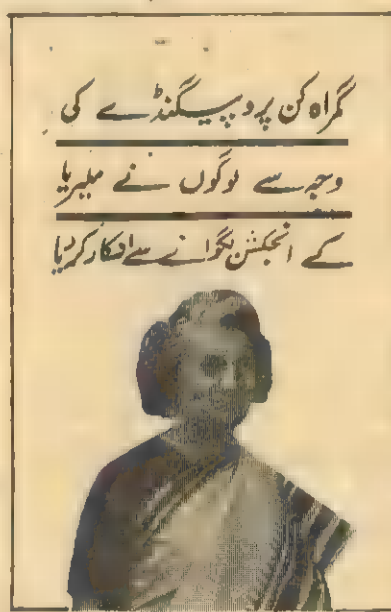 گمراہ کن پروپیگنڈے کی
وجہ سے لوگوں نے ملیریا
کے انجکشن لگوانے سے انکار کر دیا